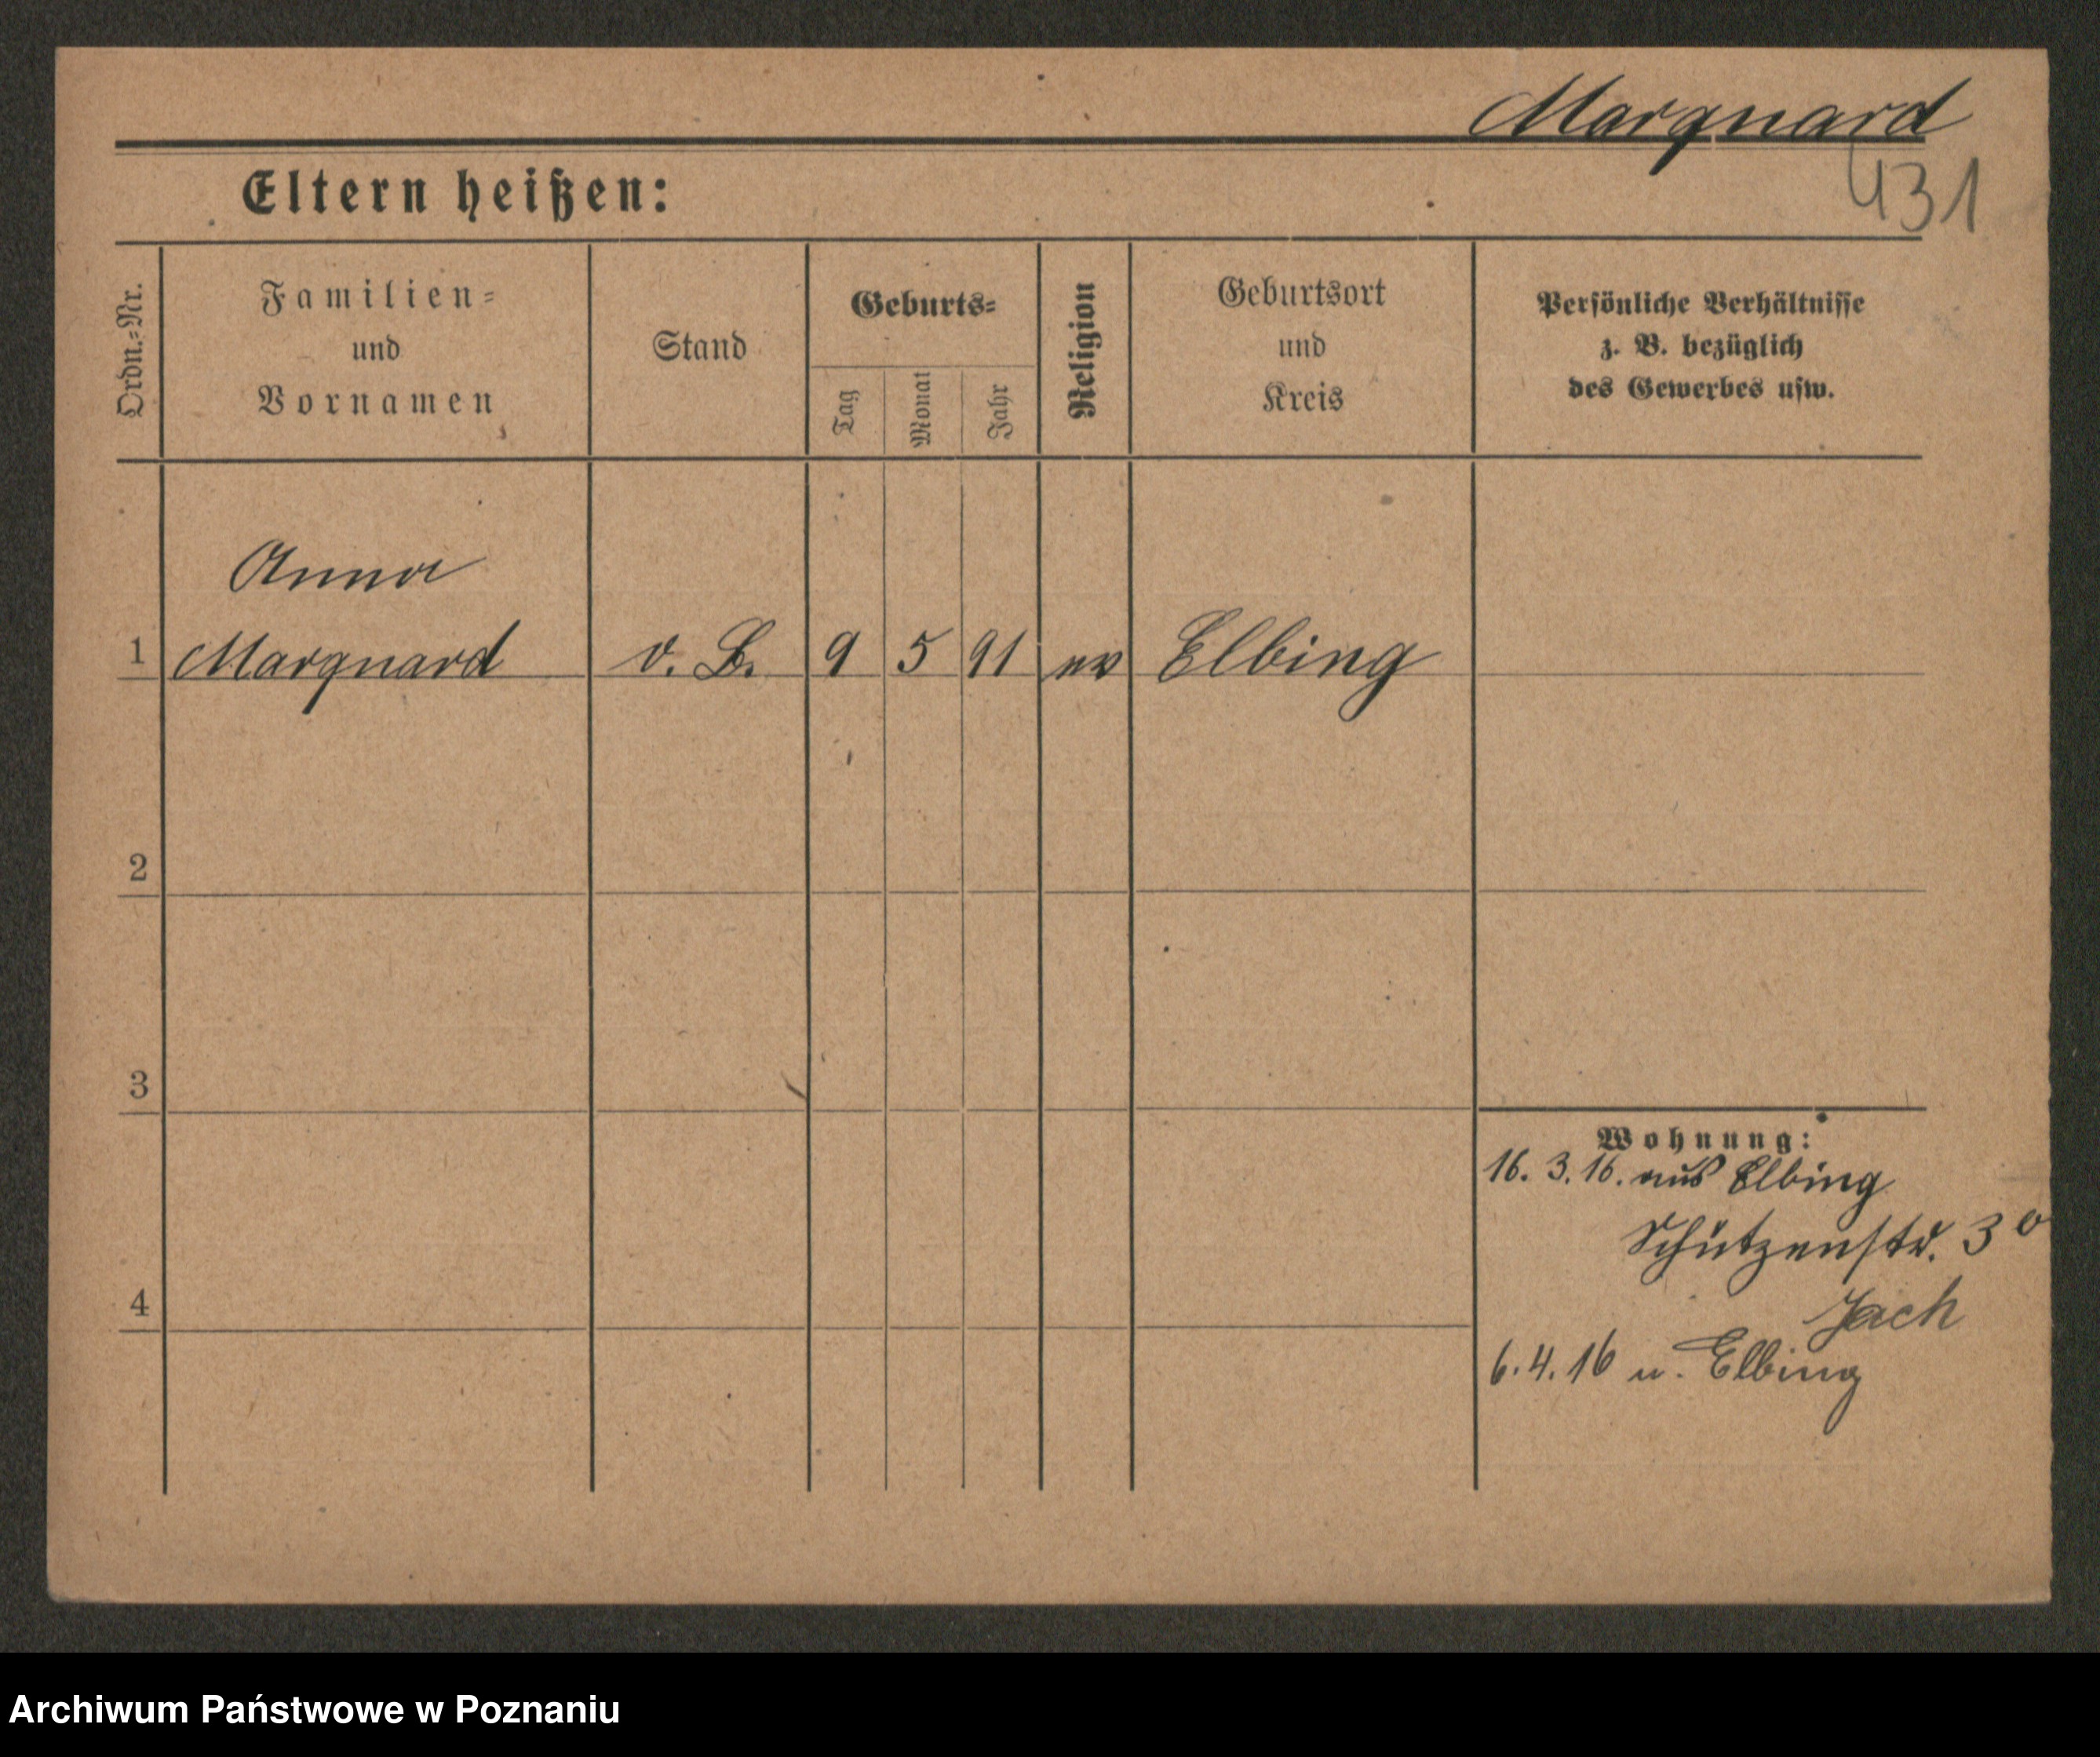 Marquard
431
Eltern heißen:
Ordn.=Nr.
Familien=
und
Vornamen
Stand
Geburts=
Tag
Monat
Jahr
Religion
Geburtsort
und
Kreis
Persönliche Verhältnisse
z. B. bezüglich
des Gewerbes usw.
Anna
1 Marquard v. B. 9 5 91 ev Elbing
2
3
Wohnung:
16. 3. 16. aus Elbing
Schützenstr. 30
Jach
4
6. 4. 16 n. Elbing
Archiwum Państwowe w Poznaniu